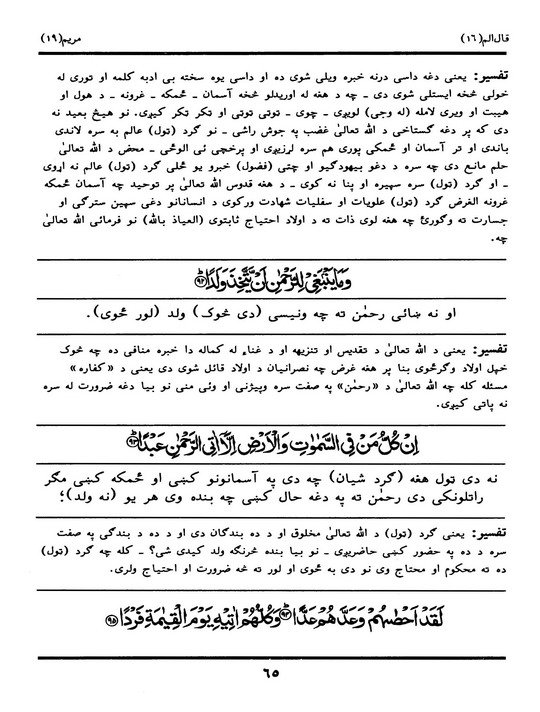 قال الم (۱٦) مریم (۱۹)
تفسیر: یعنی دغه داسی درنه خبره ویلی شوی ده او داسی یوه سخته بی ادبه کلمه او توری له
خولی څخه ایستلی شوی دی ـ چه د هغه له اوریدلو څخه آسمان ـ ځمکه ـ غرونه ـ د هول او
هیبت او ویری لامله (له وجی) لویږی ـ چوی ـ توتی توتی او تکر تکر کیږی. نو هیڅ بعید نه
دی که پر دغه گستاخی د الله تعالیٰ غضب په جوش راشی ـ نو گرد (تول) عالم به سره لاندی
باندی او تر آسمان او ځمکی پوری هم سره لرزیږی او پرخچی ئی الوځی ـ محض د الله تعالیٰ
حلم مانع دی چه سره د دغو بیهودگیو او چتی (فضول) خبرو یو ځلی گرد (تول) عالم نه اړوی
ـ او گرد (تول) سره سپیره او پنا نه کوی ـ د هغه قدوس الله تعالیٰ پر توحید چه آسمان ځمکه
غرونه الغرض گرد (تول) علویات او سفلیات شهادت ورکوی د انسانانو دغی سپین سترگی او
جسارت ته وگورئ چه هغه لوی ذات ته د اولاد احتیاج ثابتوی (العیاذ بالله) نو فرمائی الله تعالیٰ
چه.
وَمَا يَنۢبَغِي لِلرَّحْمٰنِ اَنْ يَّتَّخِذَ وَلَدًا ﴿۹۲﴾
او نه ښائی رحمٰن ته چه ونیسی (دی څوک) ولد (لور ځوی).
تفسیر: یعنی د الله تعالیٰ د تقدیس او تنزیهه او د غناء له کماله دا خبره منافی ده چه څوک
خپل اولاد وگرځوی بنا پر هغه غرض چه نصرانیان د اولاد قائل شوی دی یعنی د «کفاره»
مسئله کله چه الله تعالیٰ د «رحمٰن» په صفت سره وپیژنی او وئی منی نو بیا دغه ضرورت له سره
نه پاتی کیږی.
اِنْ كُلُّ مَنْ فِي السَّمٰوٰتِ وَالْاَرْضِ اِلَّآ اٰتِي الرَّحْمٰنِ عَبْدًا ﴿۹۳﴾
نه دی ټول هغه (گرد شیان) چه دی په آسمانونو کښی او ځمکه کښی مگر
راتلونکی دی رحمٰن ته په دغه حال کښی چه بنده وی هر یو (نه ولد)؛
تفسیر: یعنی گرد (تول) د الله تعالیٰ مخلوق او د ده بندگان دی او د ده د بندگی په صفت
سره د ده په حضور کښی حاضریږی ـ نو بیا بنده څرنگه ولد کیدی شی؟ ـ کله چه گرد (تول)
ده ته محکوم او محتاج وی نو دی به ځوی او لور ته څه ضرورت او احتیاج ولری.
لَقَدْ اَحْصٰىهُمْ وَعَدَّهُمْ عَدًّا ﴿۹۴﴾ وَكُلُّهُمْ اٰتِيْهِ يَوْمَ الْقِيٰمَةِ فَرْدًا ﴿۹۵﴾
٦٥